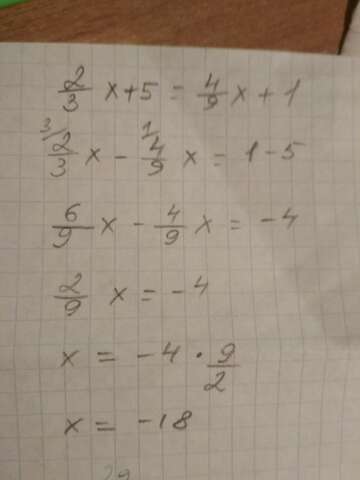 2/3 x + 5 = 4/9 x + 1
3/ 2/3 x - 1/ 4/9 x = 1 - 5
6/9 x - 4/9 x = -4
2/9 x = -4
x = -4 · 9/2
x = -18